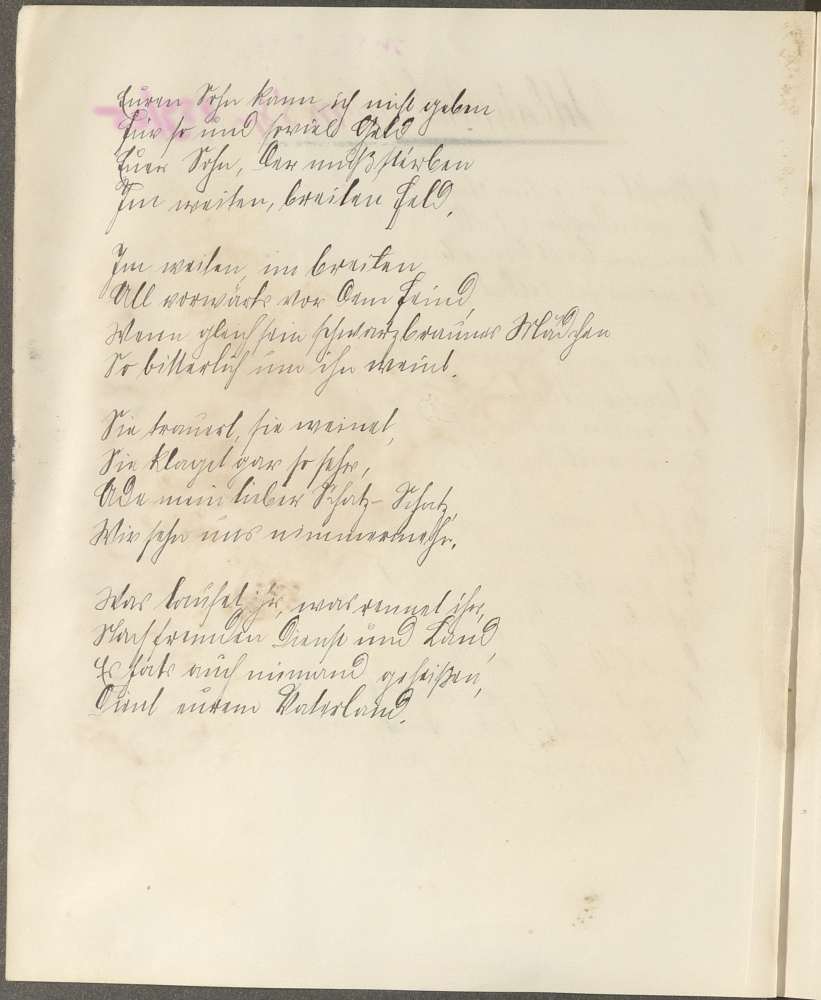 Euren Sohn kann ich nicht geben
Für so und soviel Geld
Euer Sohn, der muß sterben
Im weiten, breiten Feld.
Im weiten, im breiten
All vorwärts vor dem Feind,
Wenn gleich sein schwarzbraunes Mädchen
So bitterlich um ihn weint.
Sie trauert, sie weinet,
Sie klaget gar so sehr,
Ade mein lieber Schatz-Schatz,
Wir sehn uns nimmermehr.
Was laufet ihr, was rennet ihr,
Nach fremden Dienst und Land,
Es hats auch niemand geheißen,
Dient eurem Vaterland.